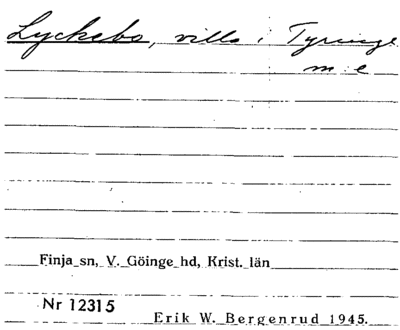 Lyckebo, villa i Tyringe
m e
Finja sn, V. Göinge hd, Krist. län
Nr 12315
Erik W. Bergenrud 1945.